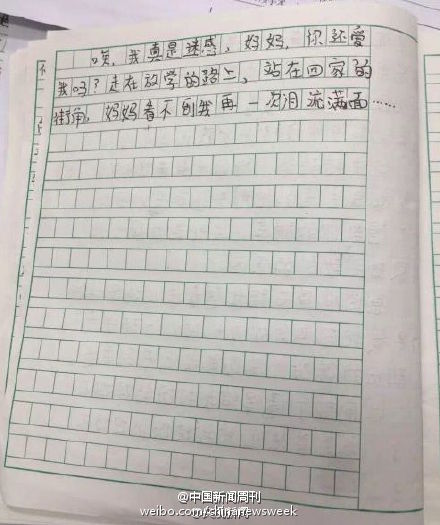 唉，我真是迷惑，妈妈，你还爱
我吗？走在放学的路上，站在回家的
街角，妈妈看不到我再一次泪流满面……
@中国新闻周刊
weibo.com/chinanewsweek